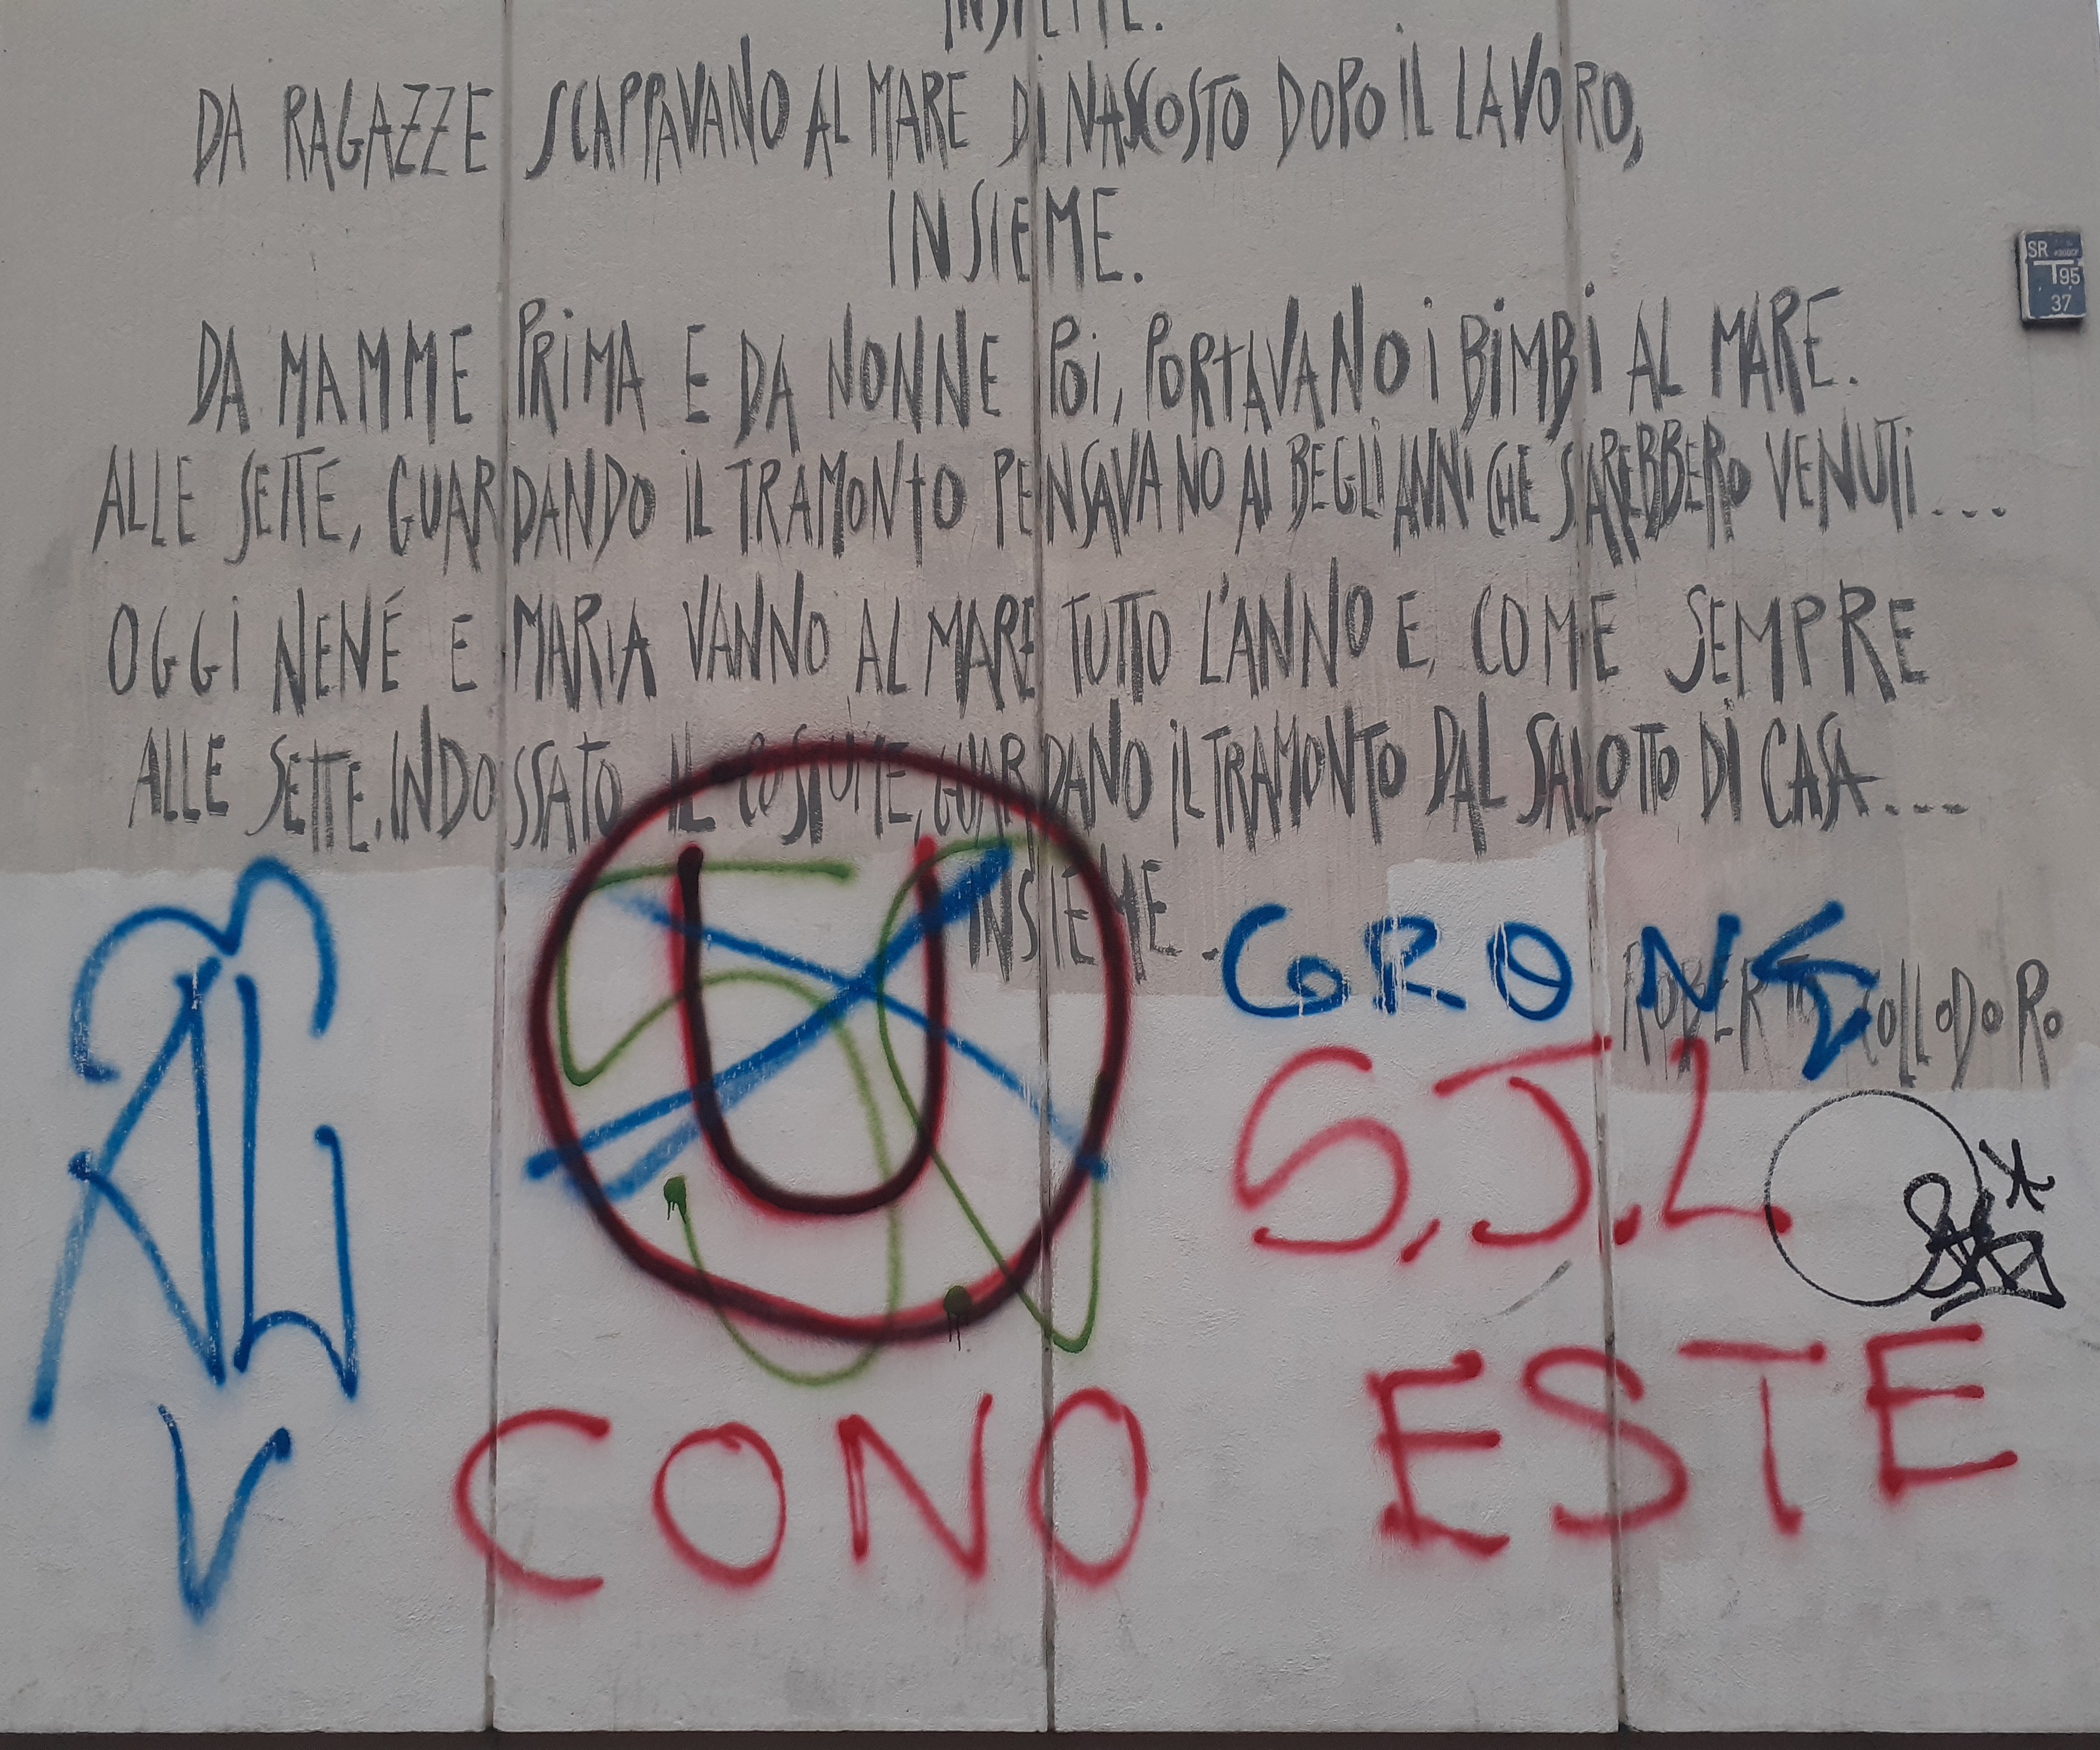 INSIEME.
DA RAGAZZE SCAPPAVANO AL MARE DI NASCOSTO DOPO IL LAVORO,
INSIEME.
SR
T95
37
DA MAMME PRIMA E DA NONNE POI, PORTAVANO I BIMBI AL MARE.
ALLE SETTE, GUARDANDO IL TRAMONTO PENSAVANO AI BEGLI ANNI CHE SAREBBERO VENUTI...
OGGI NENÉ E MARIA VANNO AL MARE TUTTO L'ANNO E, COME SEMPRE
ALLE SETTE, INDOSSATO IL COSTUME, GUARDANO IL TRAMONTO DAL SALOTTO DI CASA...
INSIEME..
ROBERTO COLLODORO
U
S.J.L.
V
CONO ESTE